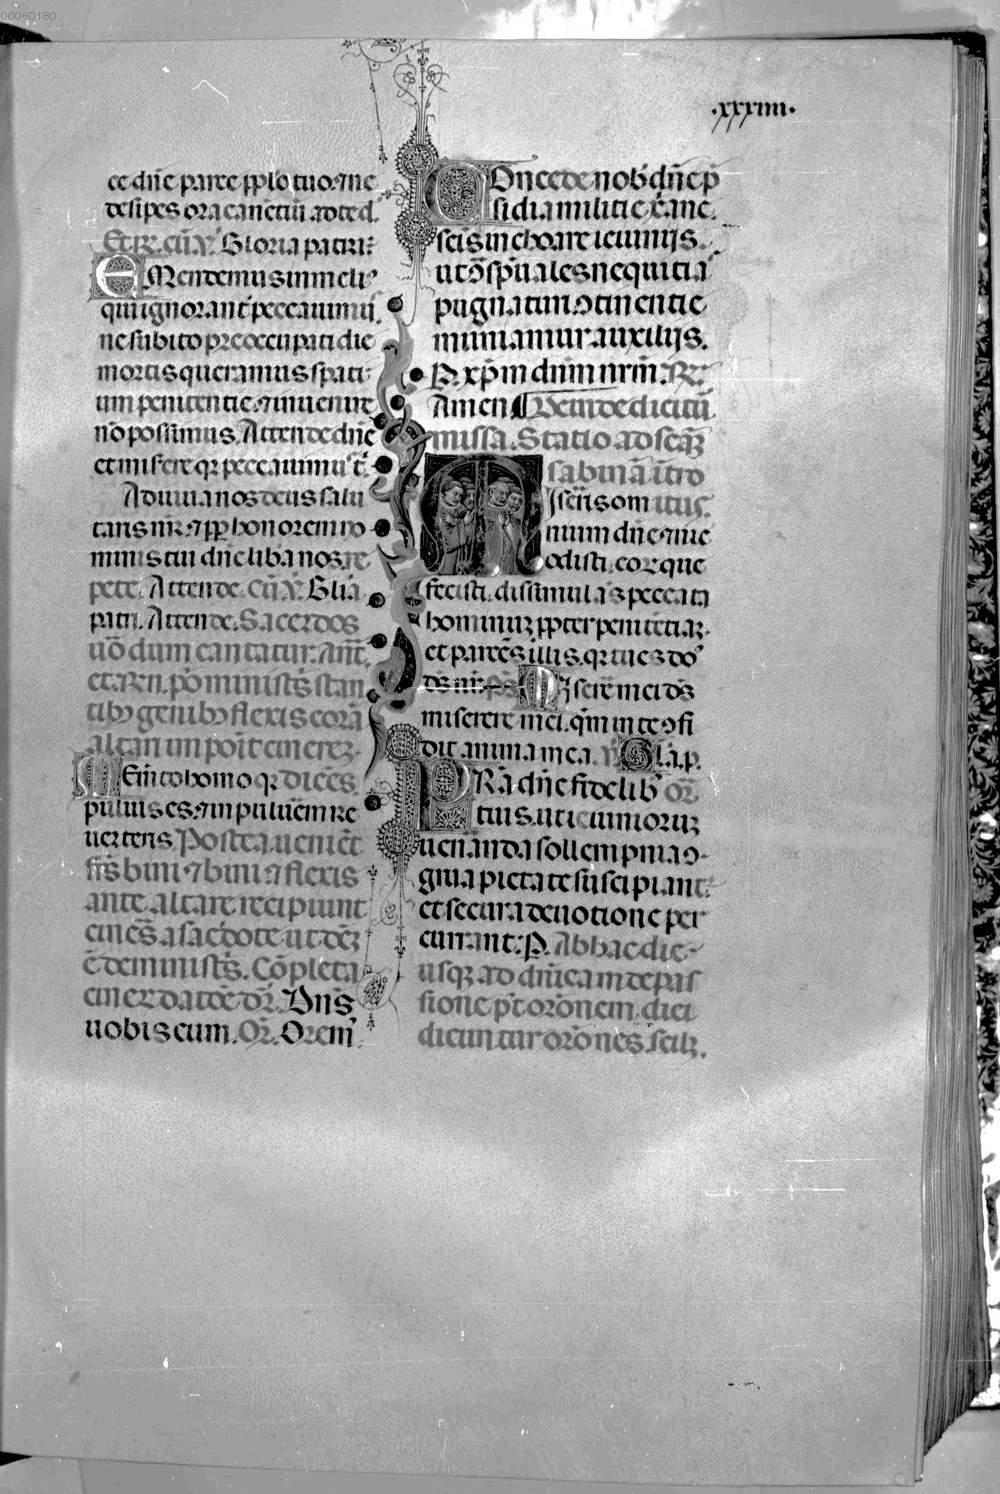 00060180
·xxxiiii·
ce dn̄e parce pp̱lo tuo. ⁊ ne
desipes ora canentiū ad te d.
Et R̃. cū ℣. Gloria patri:
EMendemus in meliꝰ
qui ignorant̄ peccauimꝰ.
ne subito preoccupati die
mortis queramus spati
um penitentie. ⁊ inuenire
nō possimus. Attende dn̄e
et miserere qꝛ peccauimus t̄.
Adiuua nos deus salu
taris nr̄. ⁊ pp̱ honorem no
minis tui dn̄e liba nos. re
pete. Attende. cū ℣. Gliā
patri. Attende. Sacerdos
uō dum cantatur. Ant̄.
et R̃ri. pō ministr̄s stan
tibꝰ genibꝰ flexis corā
altari imponit cinerez.
Mem̄to homo qꝛ dices.
puluis es. ⁊ in puluēm re
uerteris. Postea ueniēt
frs̄ bini ⁊ bini ⁊ flexis
ante altare recipiunt
cineres̄ a sac̄dote ut dc̄z
ē de ministr̄s. Cōpleta
cinez datōe dr̄. Dn̄s
uobiscum. Or̄. Orem̄ꝰ
COncede nob̄ dn̄e p̄
sidia militie xp̄iane
sc̄is inchoare ieiunijs.
ut ꝯ̄ sp̄uales nequitiaˢ
pugnaturi. ꝯtinentie
muniamur auxilijs.
P. xp̄m dn̄m nr̄m. R̃.
Amen. Deinde dicit̄ū
missa. Statio ad scāz
sabinā ītro
Isereris om̄ itus.
nium dn̄e. ⁊ nic̄
odisti. eorque
fecisti. dissimulās peccata
hominuz pp̱ter penitētiaz.
et parcēs illis. qꝛ tu es doꝰ
ds̄ nr̄. ps̄. Misere mei ds̄
miserere mei. qm̄ in te ꝯfi
dit anima mea. ℣. Gla. p.
PRā dn̄e fidelibꝰ or̄.
tuis. ut ieiunioruz
ueneranda sollempnia ꝯ
grua pietate suscipiant:
et secura deuotione per
currant. P. Abhac die
usqz ad dn̄icam de pas
sione pt̄ orōnem diei
dicuntur orōnes. scilz.